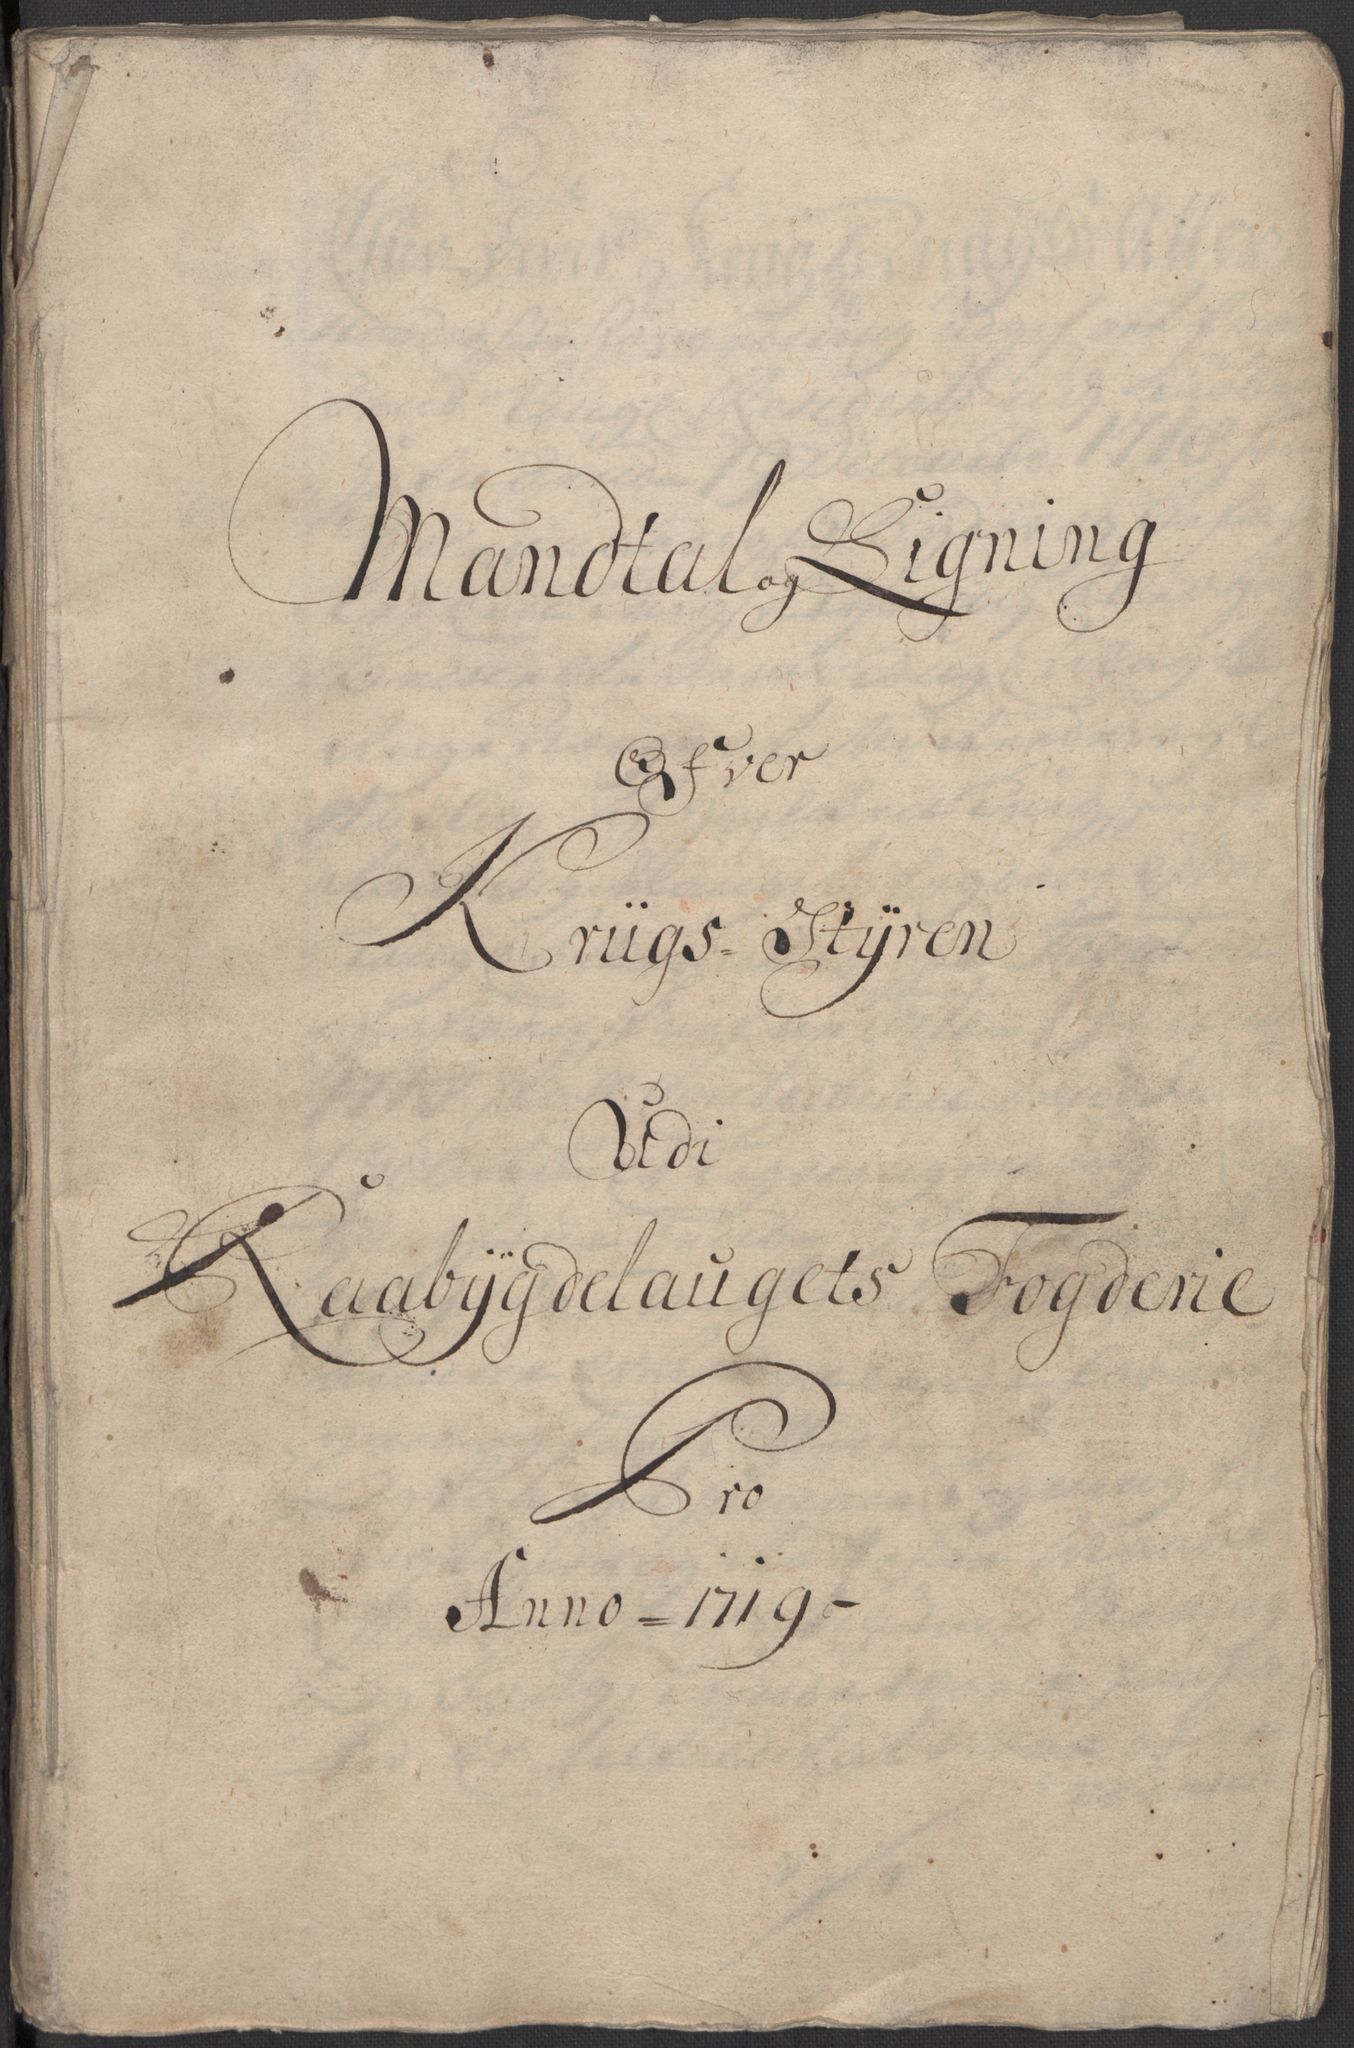 Mandtal og Ligning
Ofver
Krügs-Stÿren
Udi
Raabÿgdelaugets Fogderie
Pro
Anno = 1719 -